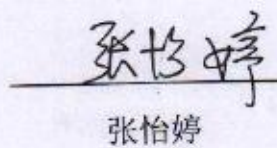 张怡婷
张怡婷